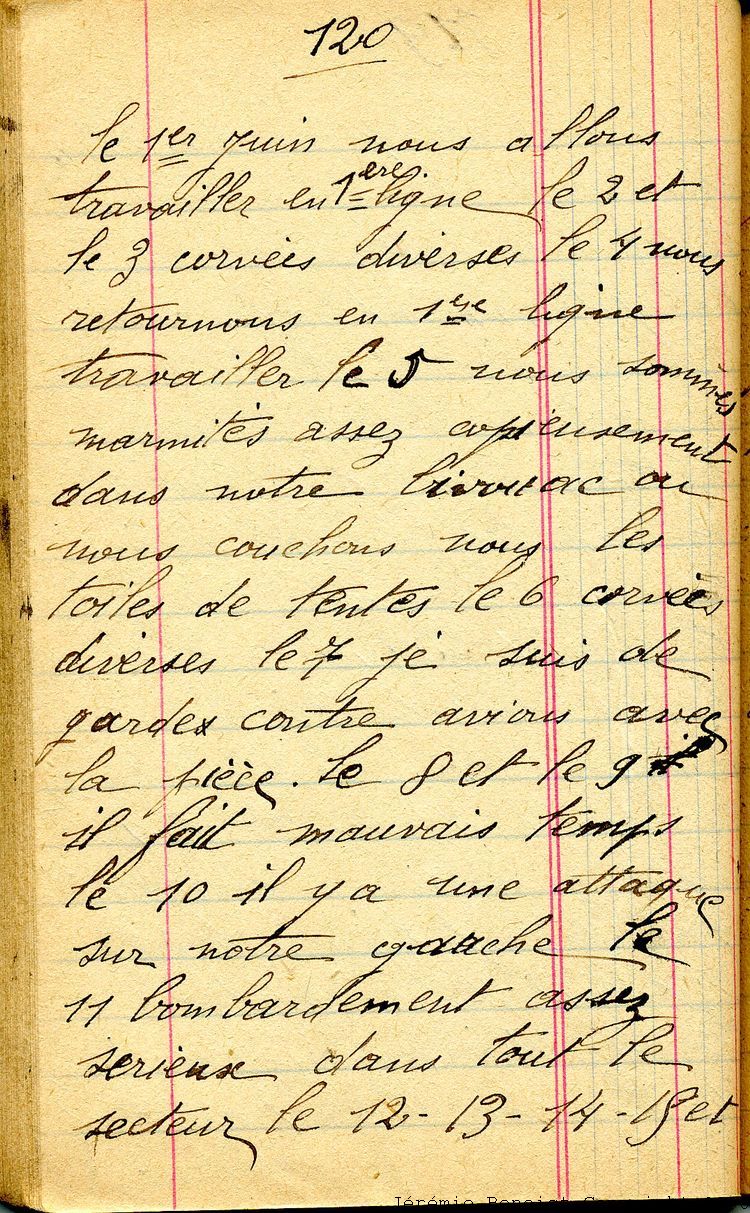 120
le 1er juin nous allons
travailler en 1ère ligne le 2 et
le 3 corvées diverses le 4 nous
retournons en 1ere ligne
travailler le 5 nous sommes
marmités assez copieusement
dans notre bivouac ou
nous couchons nous les
toiles de tentes le 6 corvées
diverses le 7 je suis de
gardes contre avions avec
la pièce. Le 8 et le 9
il fait mauvais temps
le 10 il y a une attaque
sur notre gauche le
11 bombardement assez
serieux dans tout le
secteur le 12 - 13 - 14 - 15 et